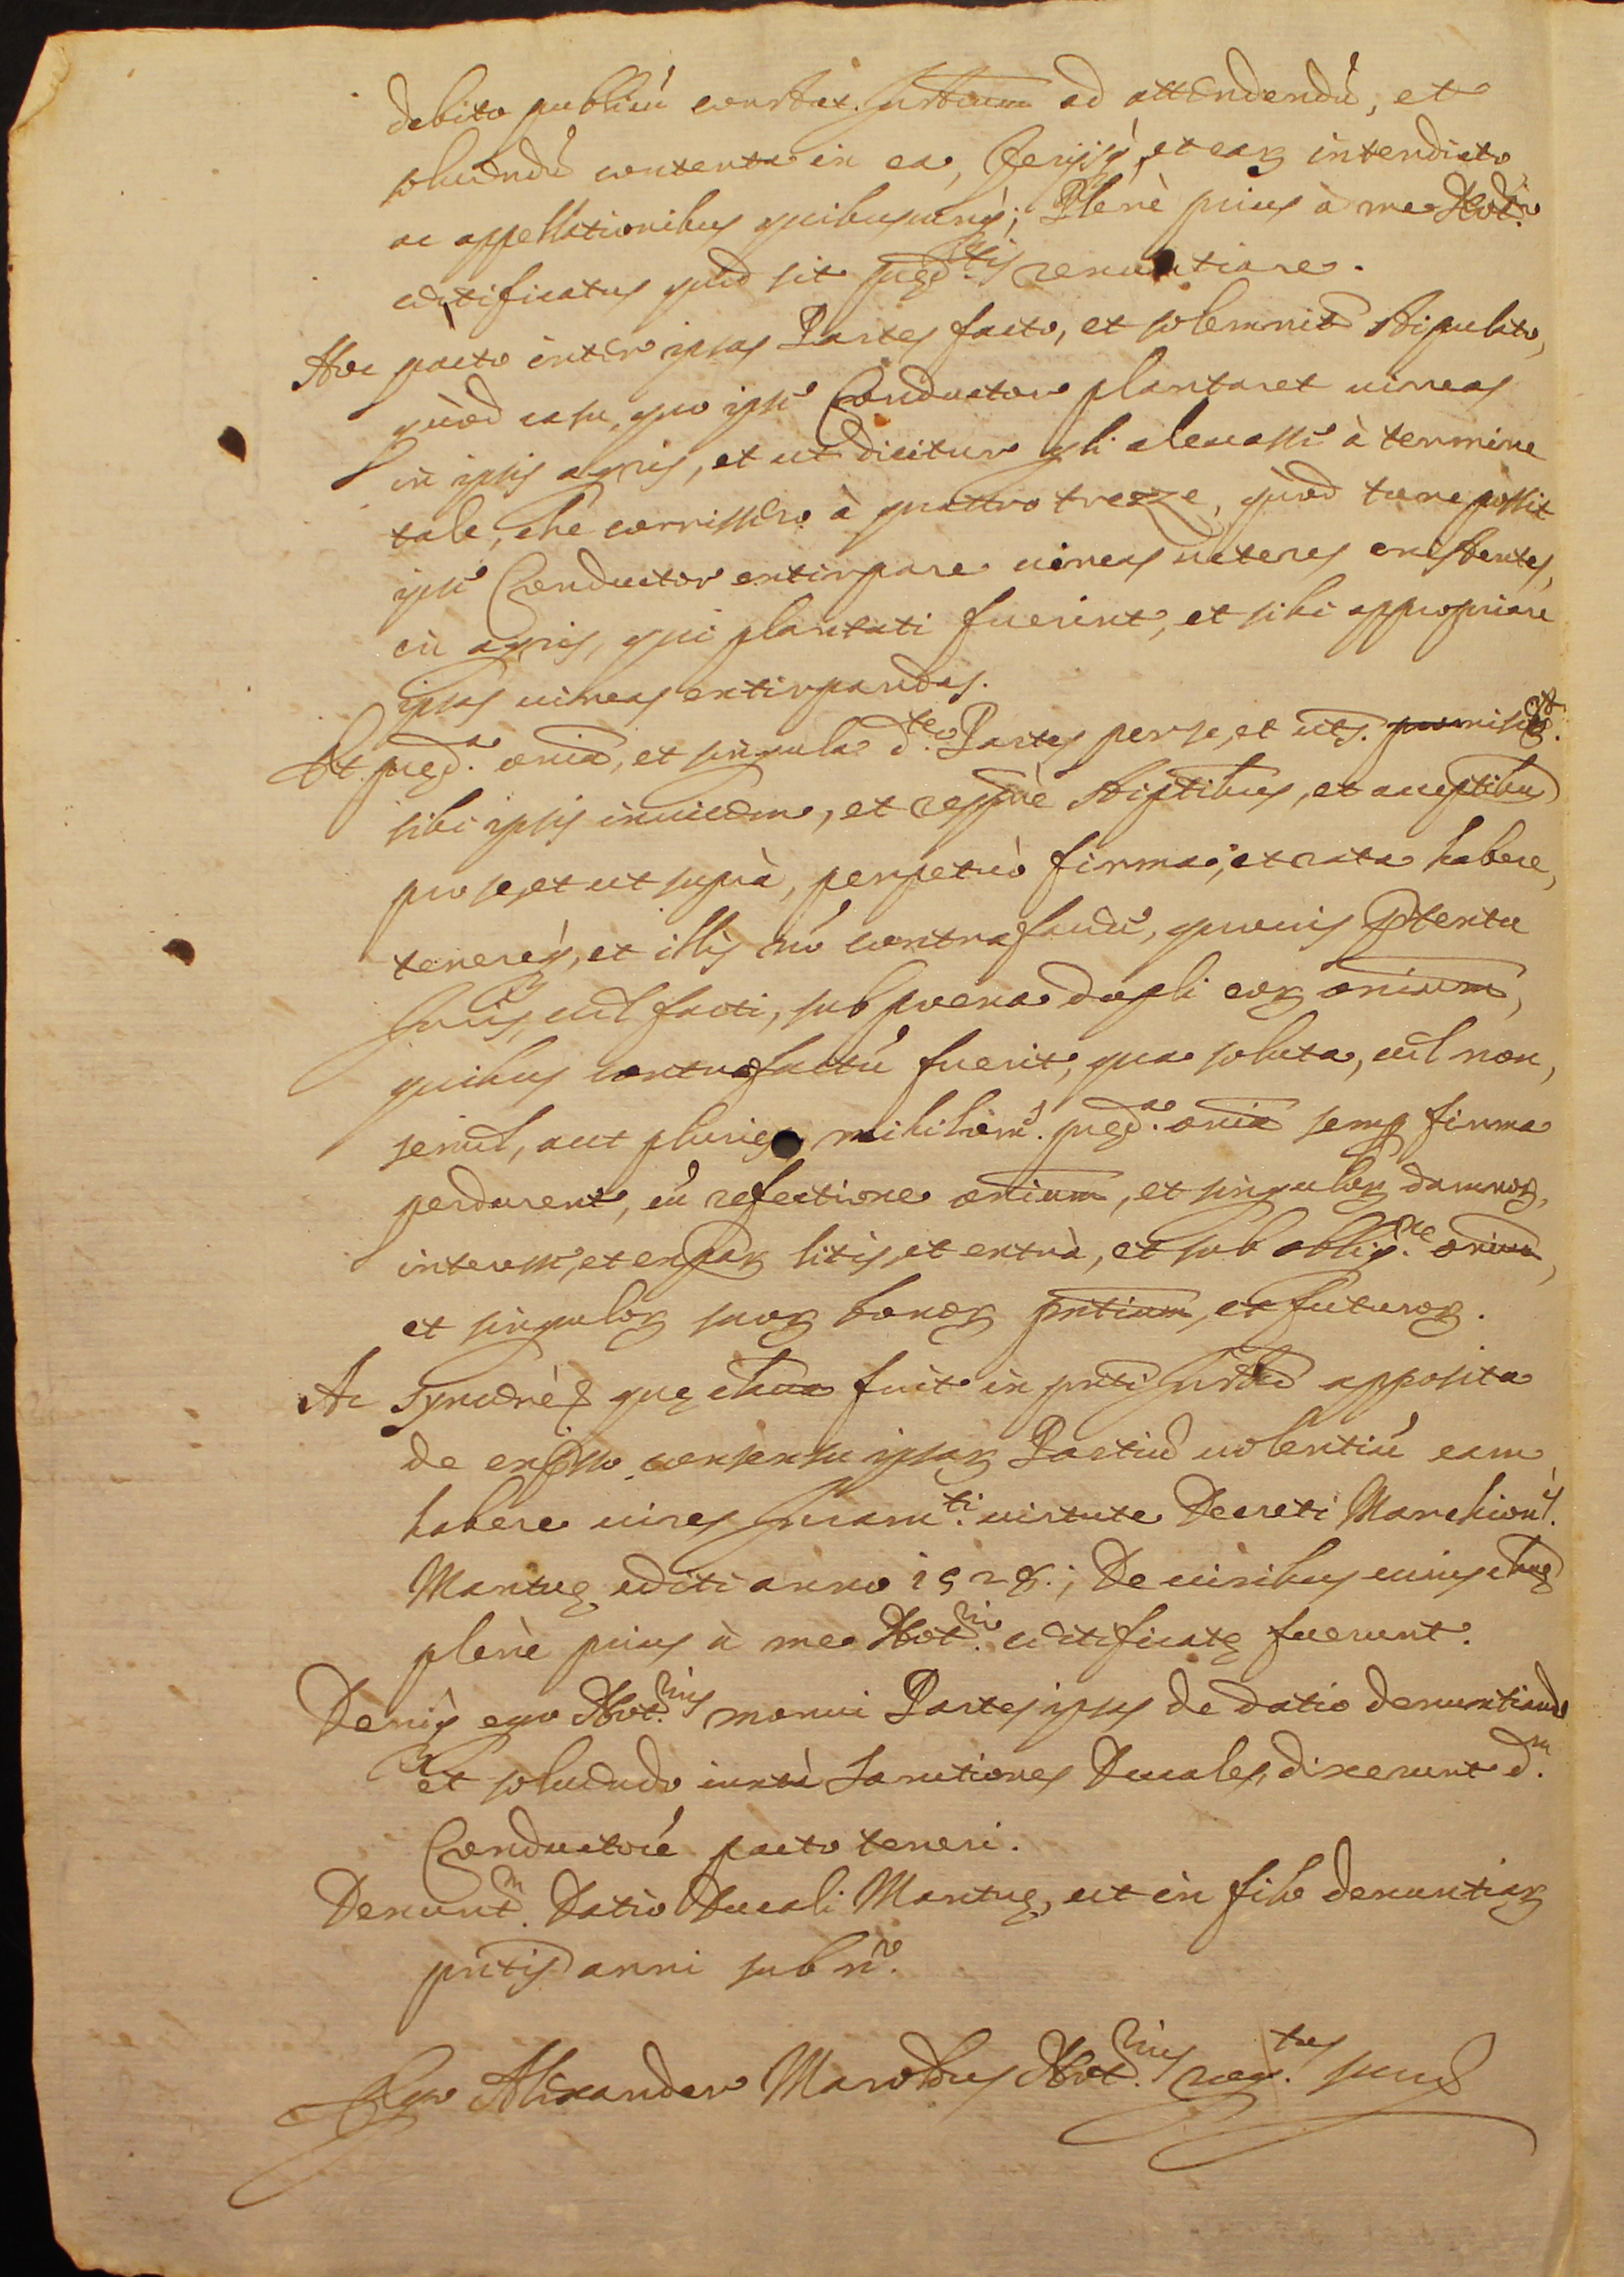 debito publicū constat. Instrum ad attendendū, et
soluendū contenta in ea, ferijsq́, et eaꝝ interdicto
ac appellationibus quibuscunq́; Plenè prius à me Notr.o
certificatus quid sit pręd.tis renuntiare.
Hoc pacto inter ipsas Partes facto, et solemnit stipulato,
quòd casu, quo ipse Conductor plantaret uineas
in ipsis agris, et ut dicitur gli aleuassi à termine
tale, che corrissero à quattro trezze, quòd tunc possit
ipse Conductor extirpare uineas ueteres existentes,
in agris, qui plantati fuerint, et sibi appropriare
ipsas uineas extirpandas.
Et pręd.a omia, et singula d.te Partes per se, et uts.
sibi ipsis inuicem, et respuè stiptibus, et acceptibus
pro se, et ut suprà, perpetuò firma, et rata habere,
tenereq́, et illis nō contrafacere, quouis ptextu
Iuris, uel facti, sub poena dupli eoꝝ omium,
quibus contrafactū fuerit, qua soluta, uel non,
semel, aut pluries nihilom. pręd.a omia semp firma
perdurent, cū refectione omium, et singuloꝝ damnoꝝ,
interesse, et expāꝝ litis, et extrà, et sub oblig.ne omium,
et singuloꝝ suoꝝ bonoꝝ pntium, et futuroꝝ.
Ac Syncerè & quę clausa fuit in pnti Instro apposita
de expsso consensu ipsaꝝ Partiū uolentiū eam
habere uires Iuram.ti uirtute Decreti Marchion.
Mantuę editi anno 1528.; De uiribus cuius claus
plenè prius à me Notr.o certificatę fuerunt.
Deniq́ ego Not.rius monui Partes ipsas de datio denuntiando
et soluendo iuxtà Sanctiones Ducales, dixerunt d.m
Conductorē pacto teneri.
Denunt.m Datio Ducali Mantuę, ut in filo denuntiaꝝ
pntis anni sub n.o
Ego Alexander Not.rius rog.tus